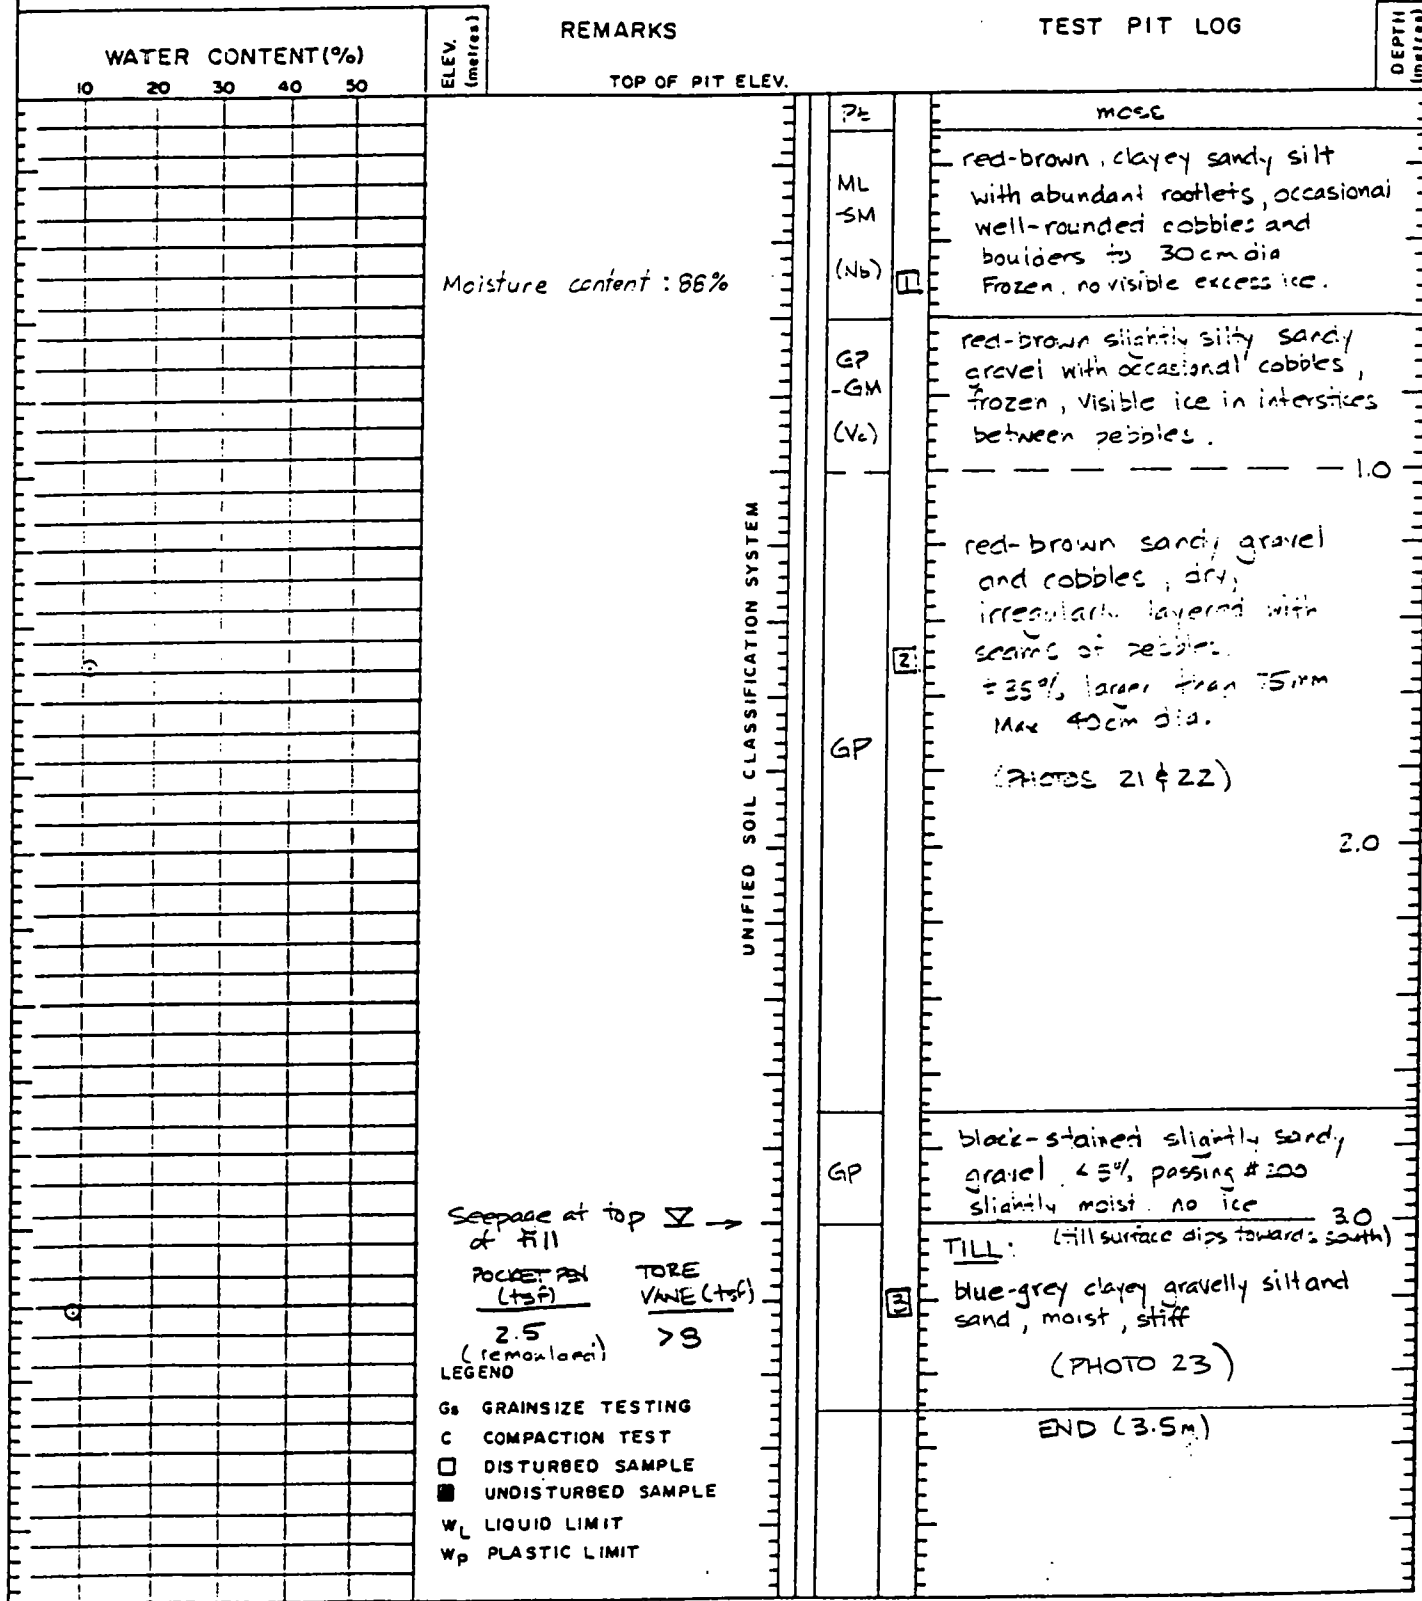 WATER CONTENT (%)
10 20 30 40 50
ELEV. (metres)
REMARKS
TOP OF PIT ELEV.
TEST PIT LOG
DEPTH (metres)
UNIFIED SOIL CLASSIFICATION SYSTEM
Pt
moss
ML
-SM
(Nb)
1
red-brown, clayey sandy silt
with abundant rootlets, occasional
well-rounded cobbles and
boulders to 30cm dia
Frozen, no visible excess ice.
Moisture content : 86%
GP
-GM
(Vc)
red-brown slightly silty sandy
gravel with occasional cobbles,
frozen, visible ice in interstices
between pebbles.
1.0
GP
2
red-brown sandy gravel
and cobbles, dry,
irregularly layered with
seams of pebbles.
±35% larger than 75mm
Max 40cm dia.
(PHOTOS 21 & 22)
2.0
GP
black-stained slightly sandy
gravel <5% passing #200
slightly moist. no ice
3.0
Seepage at top
of till
POCKET PEN (tsf)
2.5
(remoulded)
TORE VANE (tsf)
TILL: (till surface dips towards south)
3
blue-grey clayey gravelly silt and
sand, moist, stiff
(PHOTO 23)
END (3.5m)
LEGEND
Gs GRAINSIZE TESTING
C COMPACTION TEST
DISTURBED SAMPLE
UNDISTURBED SAMPLE
WL LIQUID LIMIT
Wp PLASTIC LIMIT